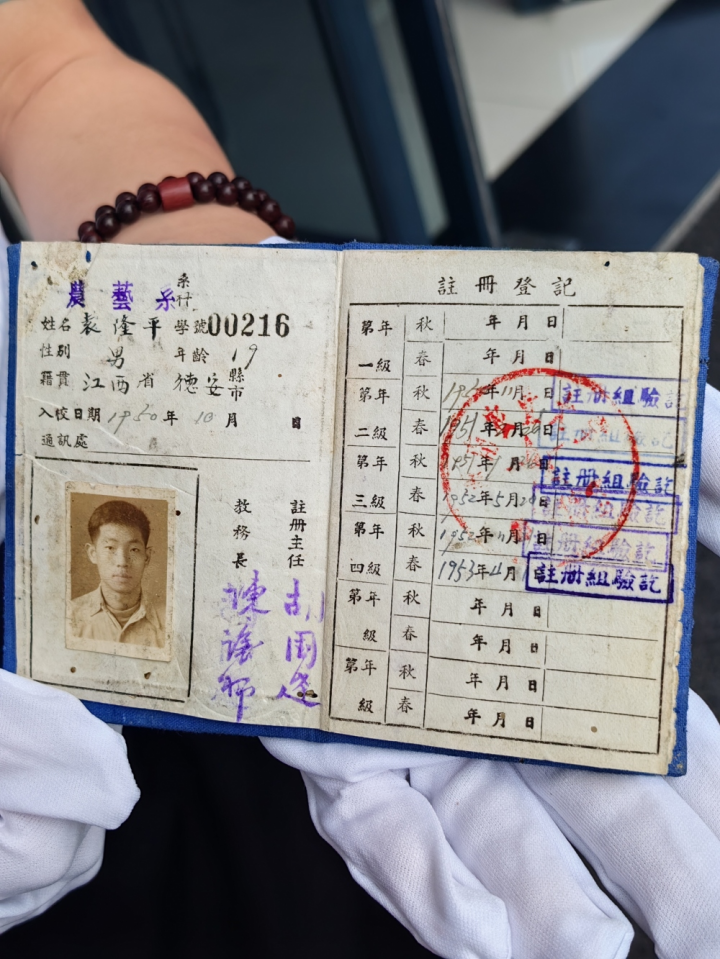 農藝系
系
科
姓名 袁隆平 學號 00216
性别 男 年齡 19
籍貫 江西省 德安 縣市
入校日期 1950年 10月 日
通訊處
教務長
註册主任
註冊登記
第年 秋 年月日
一級 春 年月日
第年 秋 年11月日 註册組驗訖
二級 春 1951年 月 日 註册組驗訖
第年 秋 1951年 月 日 註册組驗訖
三級 春 1952年5月 日 註册組驗訖
第年 秋 1952年 月 日 註册組驗訖
四級 春 1953年4月 註册組驗訖
第年 秋 年月日
級 春 年月日
第年 秋 年月日
級 春 年月日